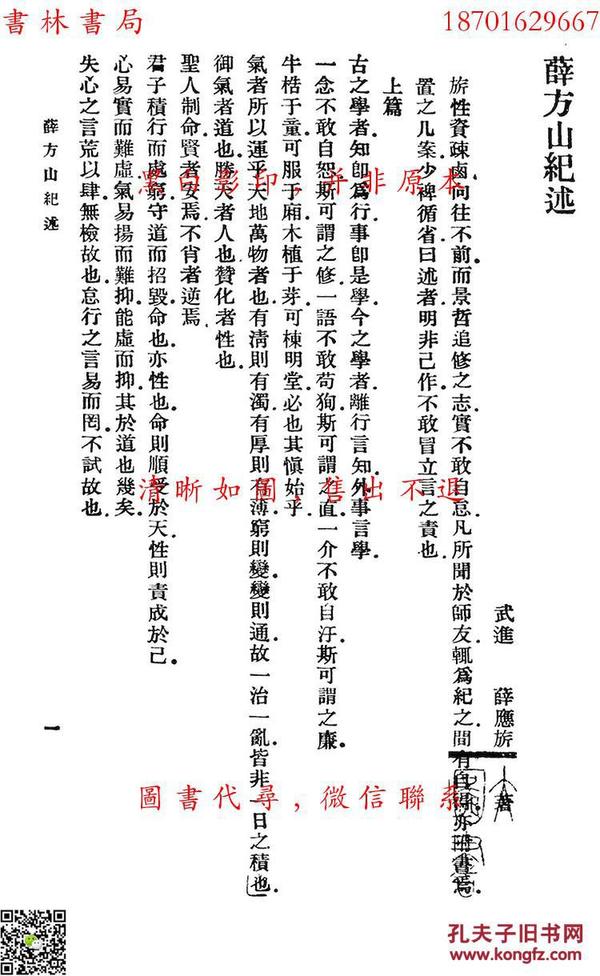 書林書局
18701629667
薛方山紀述
武進 薛應旂 著
旂性資疎鹵向往不前而景哲追修之志實不敢自怠凡所聞於師友輒爲紀之間有自得亦卌書焉
置之几案少裨循省曰述者明非己作不敢冒立言之責也
上篇
古之學者知卽爲行事卽是學今之學者離行言知外事言學
一念不敢自恕斯可謂之修一語不敢苟狥斯可謂之直一介不敢自汙斯可謂之廉
牛梏于童可服于廂木植于芽可棟明堂必也其愼始乎
氣者所以運乎天地萬物者也有淸則有濁有厚則有薄窮則變變則通故一治一亂皆非一日之積也
御氣者道也勝天者人也贊化者性也
聖人制命賢者安焉不肖者逆焉
君子積行而處窮守道而招毀命也亦性也命則順受於天性則責成於己
心易實而難虛氣易揚而難抑能虛而抑其於道也幾矣
失心之言荒以肆無檢故也怠行之言易而罔不試故也
薛方山紀述
一
黑白影印，并非原本
清晰如圖，售出不退
圖書代尋，微信聯系
孔夫子旧书网